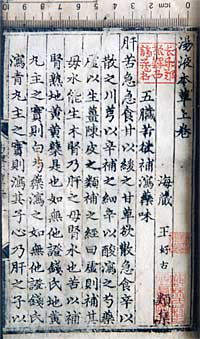 湯液本草上卷
海藏 王好古 類集
五臟苦欲補瀉藥味
肝苦急急食甘以緩之甘草欲散急食辛以
散之川芎以辛補之細辛以酸瀉之芍藥
虛以生薑陳皮之類補之經曰虛則補其
母水能生木腎乃肝之母腎水也苦以補
腎熟地黃黃蘗是也如無他證錢氏地黃
丸主之實則白芍藥瀉之如無他證錢氏
瀉青丸主之實則瀉其子心乃肝之子以